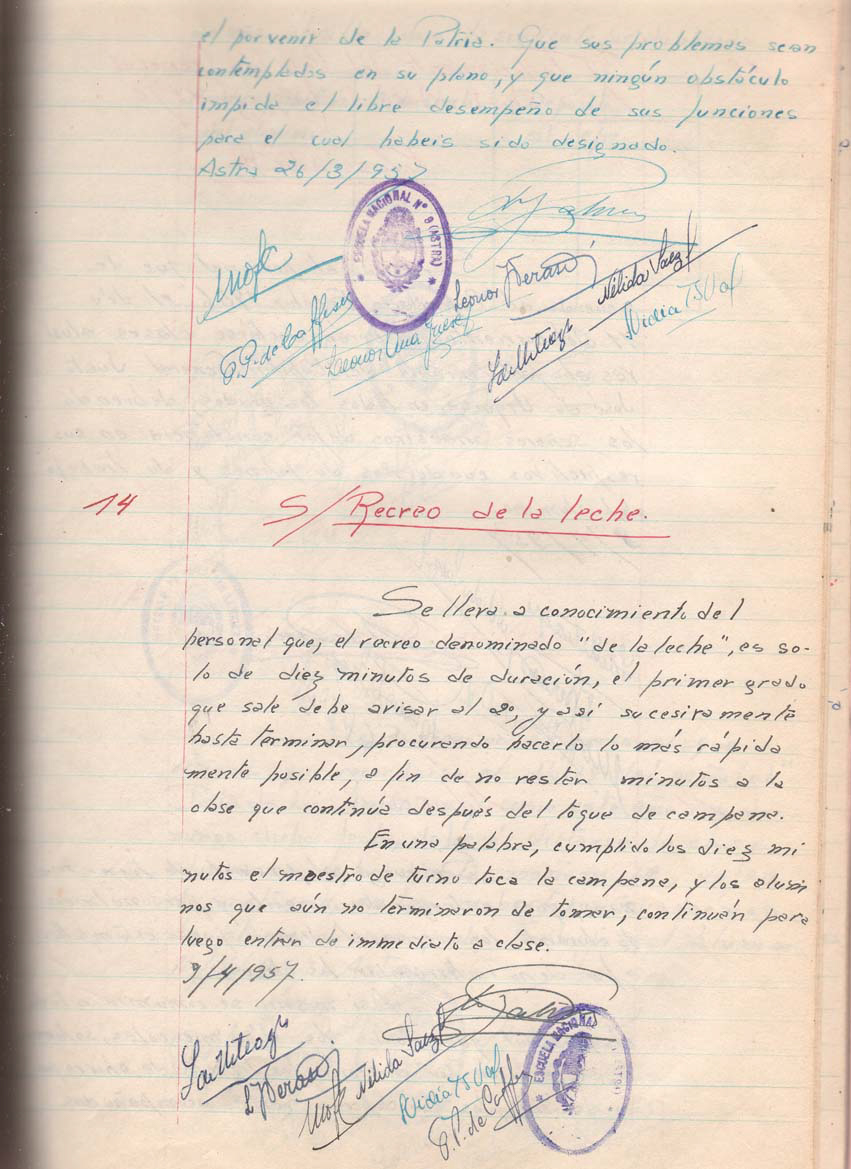 el porvenir de la Patria. Que sus problemas sean
contemplados en su plano, y que ningún obstáculo
impida el libre desempeño de sus funciones
para el cual habeis sido designado.
Astra 26/3/957
ESCUELA NACIONAL Nº 8 (ASTRA)
Leonor
Nélida Saez
P. de Caffa
Leonor Ana
Nidia
14 S/ Recreo de la leche.
Se lleva a conocimiento del
personal que, el recreo denominado "de la leche", es so-
lo de diez minutos de duración, el primer grado
que sale debe avisar al 2º, y así sucesivamente
hasta terminar, procurando hacerlo lo más rápida
mente posible, a fin de no restar minutos a la
clase que continúa después del toque de campana.
En una palabra, cumplido los diez mi
nutos el maestro de turno toca la campana, y los alum
nos que aún no terminaron de tomar, continuán para
luego entrar de immediato a clase.
9/4/957.
Nélida Saez
Nidia
ESCUELA NACIONAL